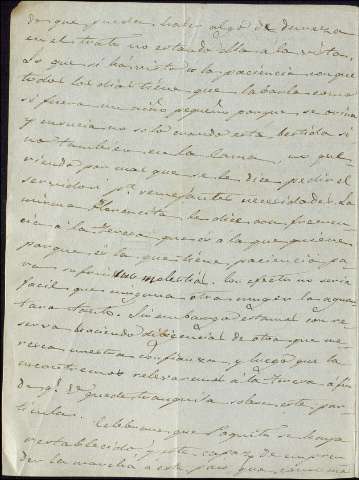 porque pueda haber algo de dureza
en el trato no estando ella a la vista.
Lo que si hé visto es la paciencia con que
todos los dias tiene que labarla como
si fuera un niño pequeño porque se orina
y ensucia no solo cuando está bestida si
no tambien en la cama, no que
riendo por mas que se le dice pedir el
servidor pª semejantes necesidades. La
misma Florencita le dice con frecuen
cia á la Teresa que es á la que quiere
porque es la que tiene paciencia pa
ra sufrir sus molestias. En efecto no seria
facil que ninguna otra muger la aguan
tara tanto. Sin embargo estamos en re
serva haciendo diligencias de otra que me
rezca nuestra confianza y luego que la
encontremos relevaremos á la Teresa á fin
de qe. V. quede tranquila sobre este par
ticular.
Celebramos que Paquito se haya
restablecido y esté capaz de empren
der la marcha á este pais que